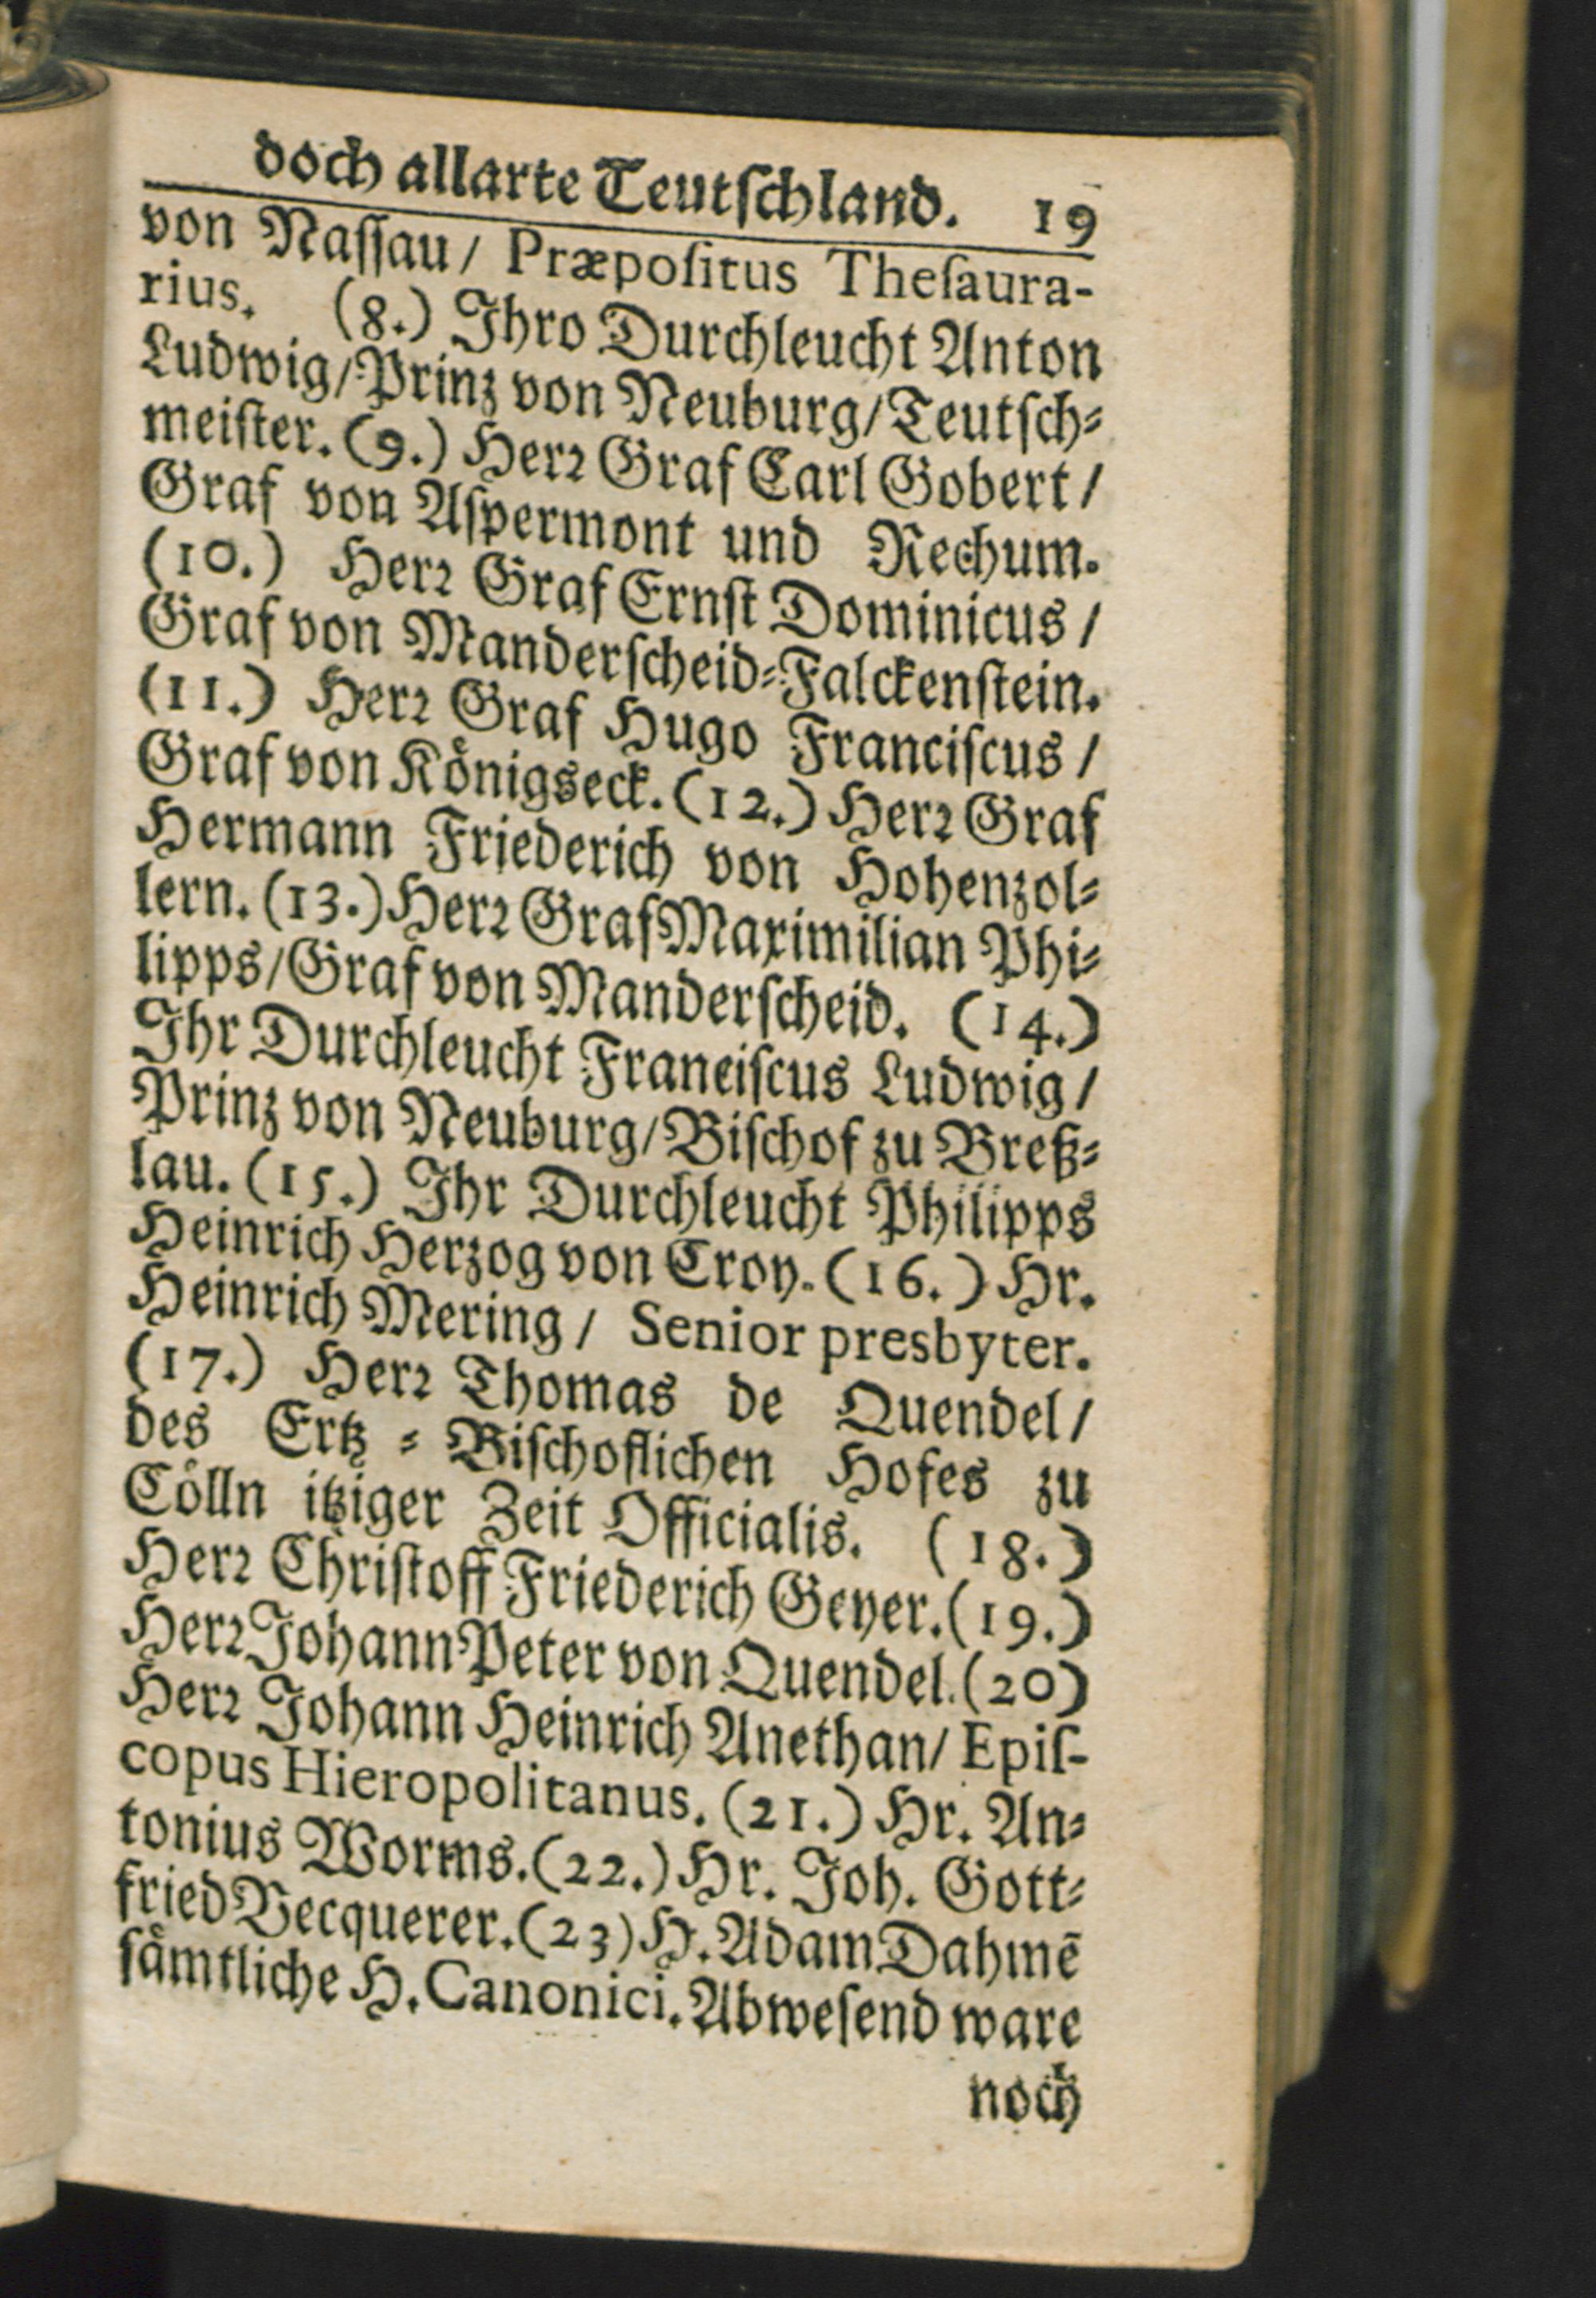 doch allarte Teutſchland. 19
von Naſſau/ Præpoſitus Theſaura-
rius. (8.) Ihro Durchleucht Anton
Ludwig/Prinz von Neuburg/Teutſch⸗
meiſter. (9.) Herꝛ Graf Carl Gobert/
Graf von Aſpermont und Rechum.
(10.) Herꝛ Graf Ernſt Dominicus/
Graf von Manderſcheid⸗Falckenſtein.
(11.) Herꝛ Graf Hugo Franciſcus/
Graf von Koͤnigseck. (12.) Herꝛ Graf
Hermann Friederich von Hohenzol⸗
lern. (13.) Herꝛ Graf Maximilian Phi⸗
lipps/Graf von Manderſcheid. (14.)
Ihr Durchleucht Franeiſcus Ludwig/
Prinz von Neuburg/Biſchof zu Breß⸗
lau. (15.) Ihr Durchleucht Philipps
Heinrich Herzog von Croy. (16.) Hr.
Heinrich Mering/ Senior presbyter.
(17.) Herꝛ Thomas de Quendel/
des Ertz⸗Biſchoflichen Hofes zu
Coͤlln itziger Zeit Officialis. (18.)
Herꝛ Chriſtoff Friederich Geyer. (19.)
Herꝛ Johann Peter von Quendel. (20)
Herꝛ Johann Heinrich Anethan/ Epiſ-
copus Hieropolitanus. (21.) Hr. An⸗
tonius Worms. (22.) Hr. Joh. Gott⸗
fried Becquerer. (23) H. Adam Dahmē
ſaͤmtliche H. Canonici. Abweſend ware
noch